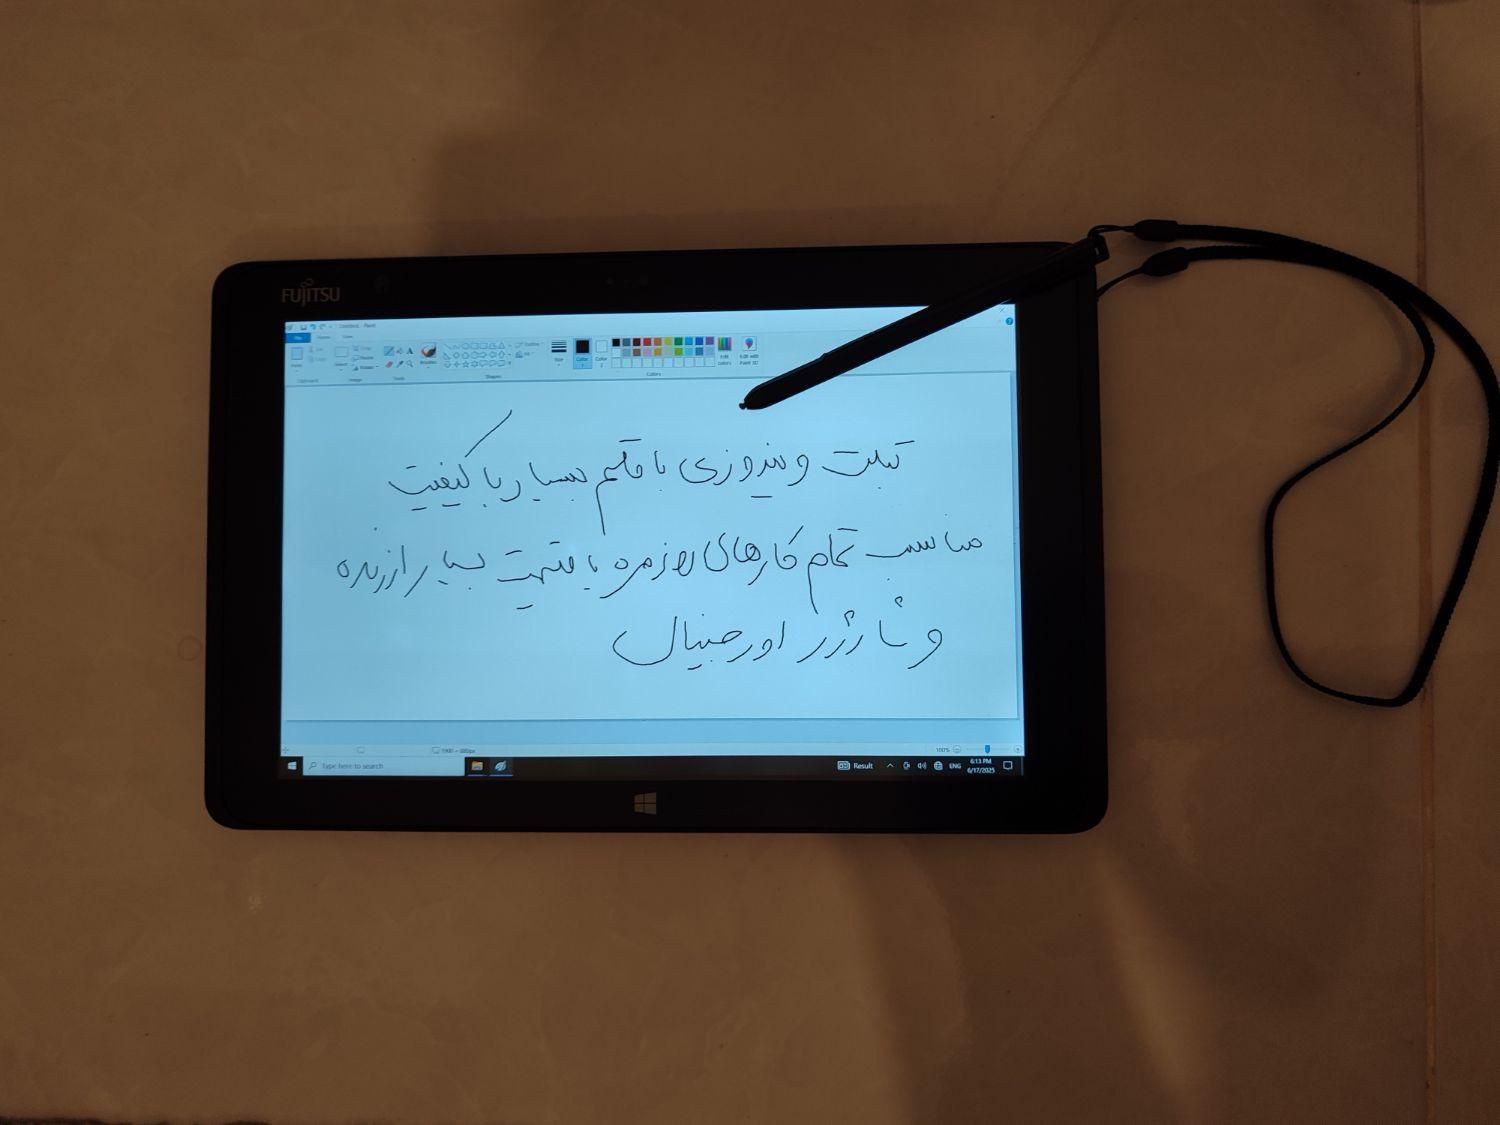 FUJITSU
Untitled - Paint
File Home View
Paste Select Brushes Size Color 1 Color 2 Edit colors Edit with Paint 3D
Clipboard Image Tools Shapes Colors
تبلت ویندوزی با قلم بسیار با کیفیت
مناسب تمام کارهای روزمره با قیمت بسیار ارزنده
و شارژر اورجینال
100%
Type here to search Result ENG 6:13 PM
6/17/2025